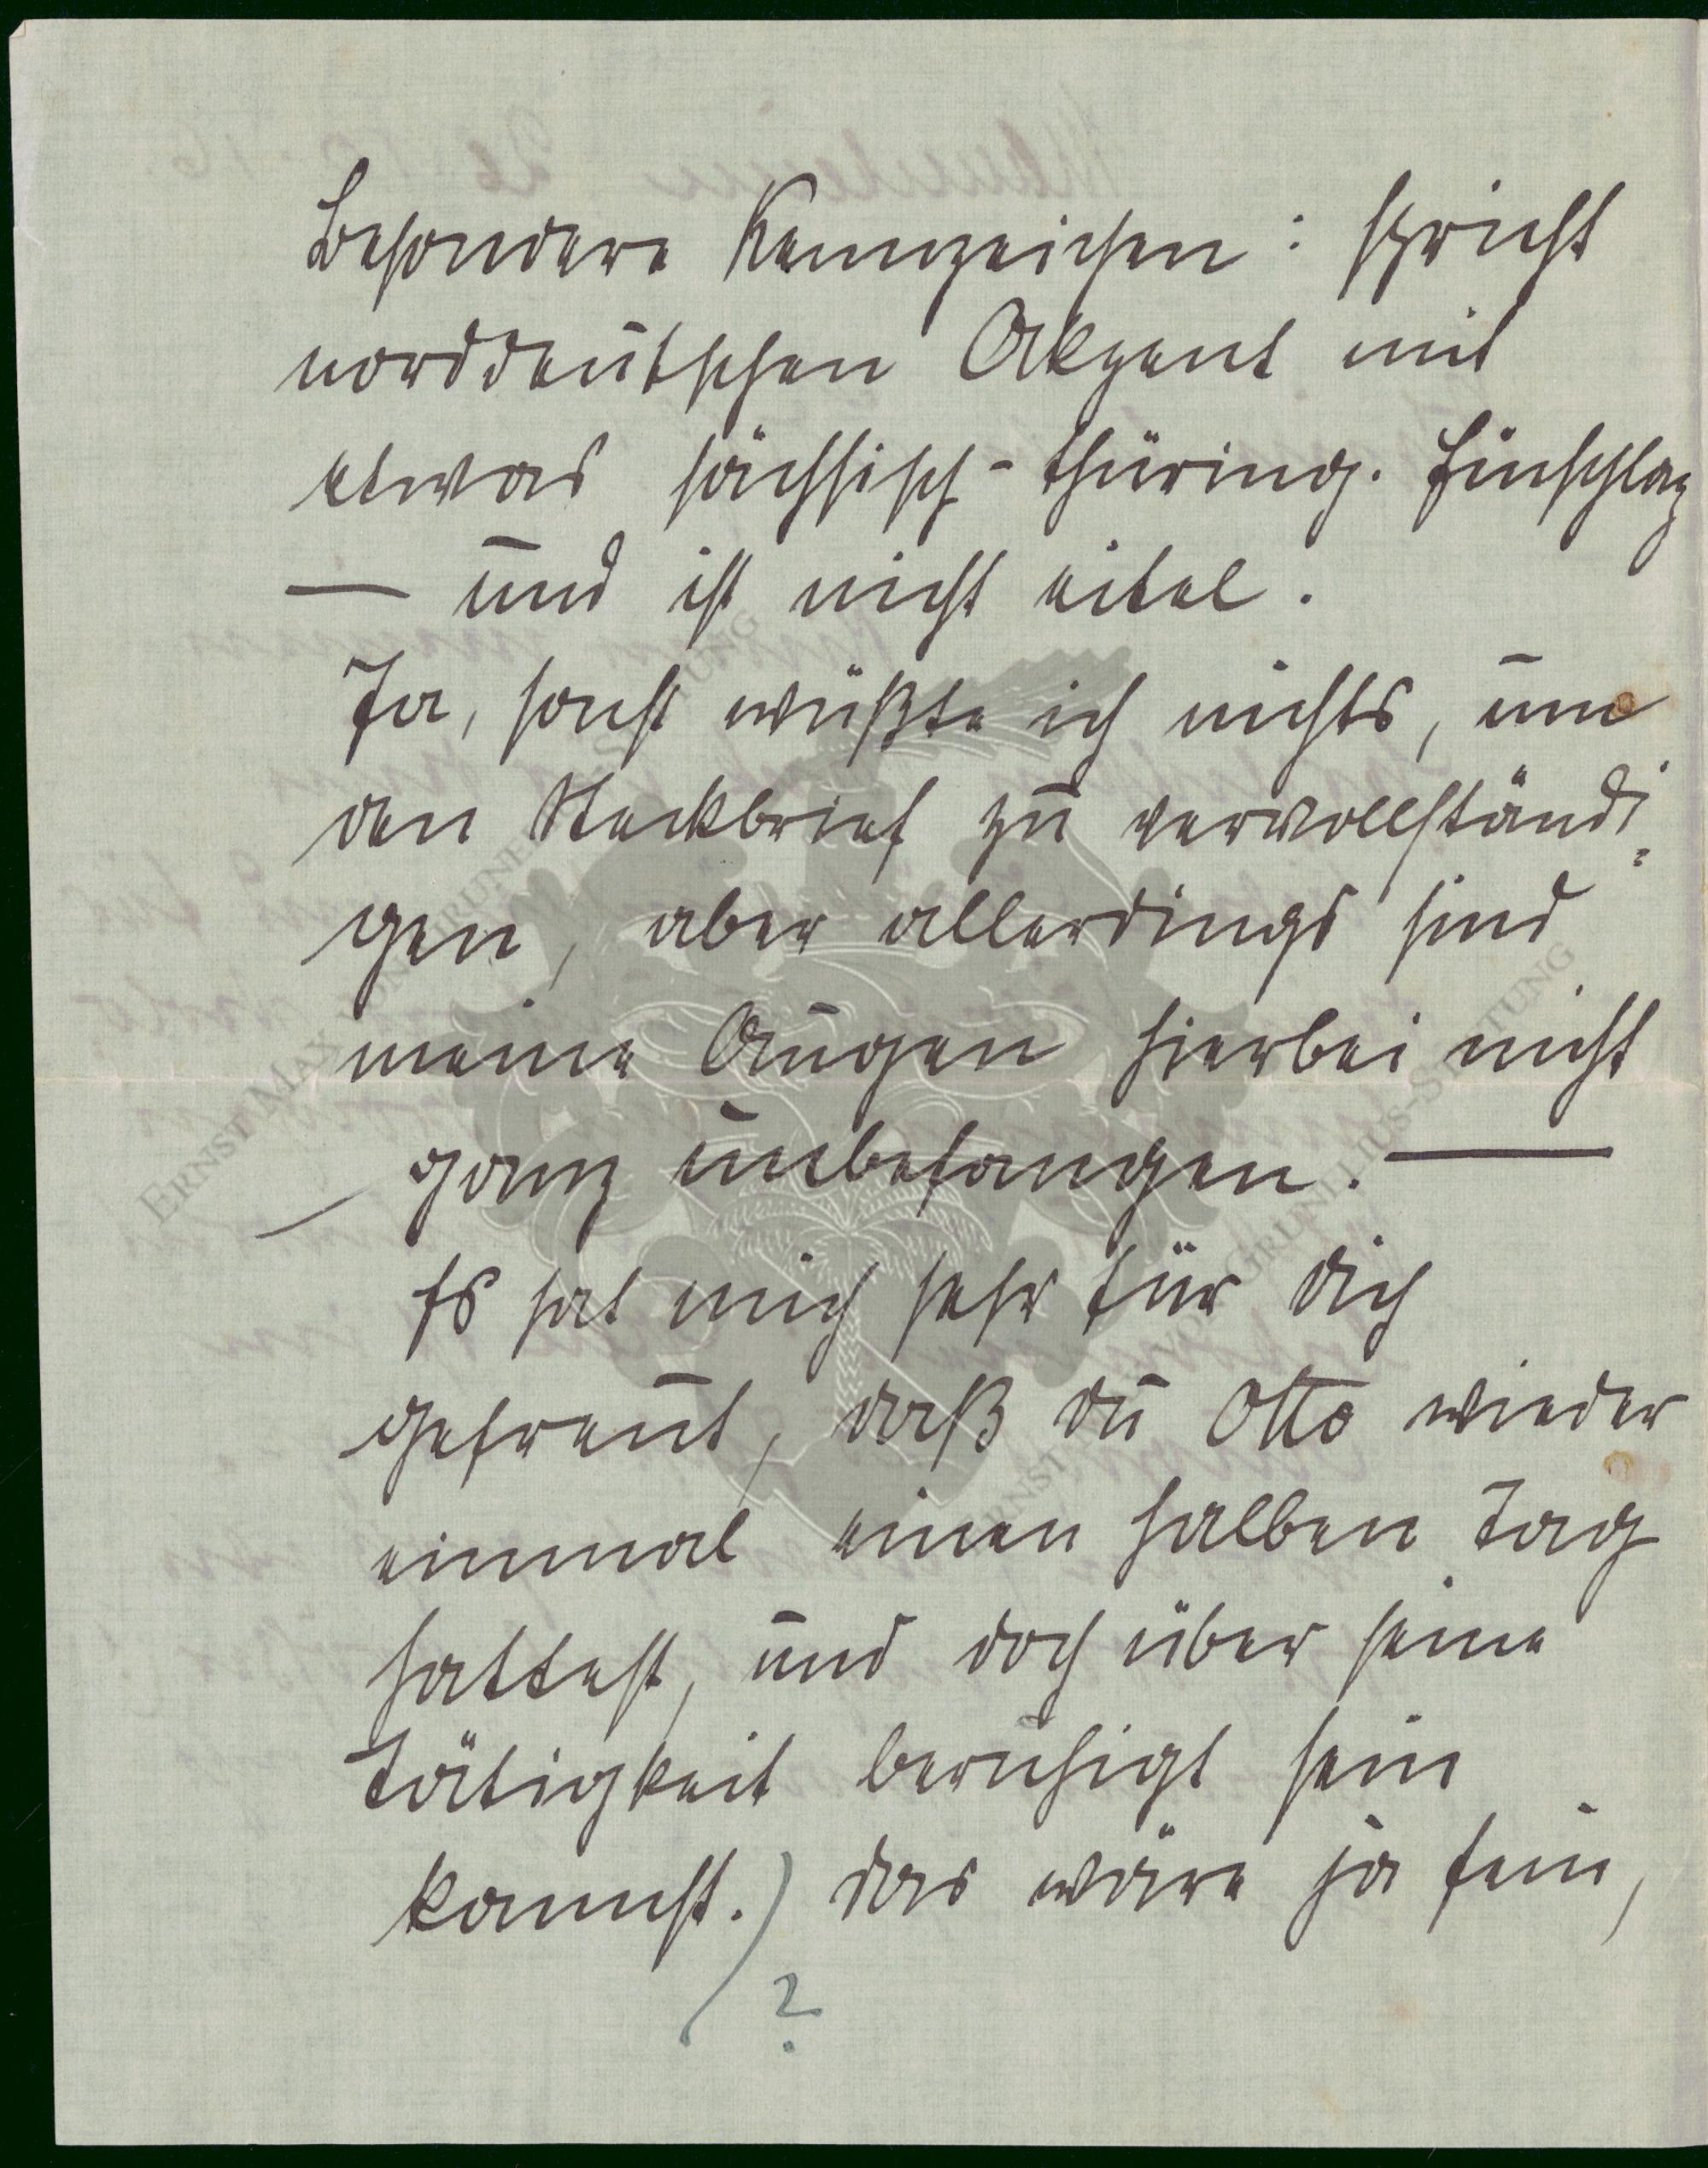 Besondere Kennzeichen: spricht
norddeutschen Akzent mit
etwas sächsisch-thüring. Einschlag
— und ist nicht eitel.
Ja, sonst wüßte ich nichts, um
den Steckbrief zu vervollständi-
gen, aber allerdings sind
meine Augen hierbei nicht
ganz unbefangen. —
Es hat mich sehr für dich
gefreut, daß du Otto wieder
einmal einen halben Tag
hattest, und doch über seine
Tätigkeit beruhigt sein
kannst.) das wäre ja fein,
?
ERNST MAX VON GRUNELIUS-STIFTUNG
ERNST MAX VON GRUNELIUS-STIFTUNG